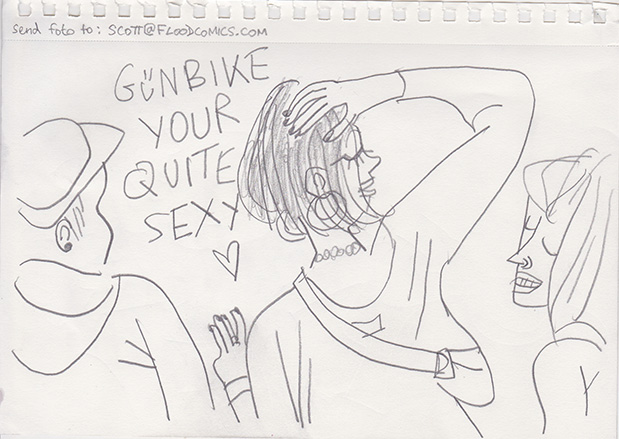 send foto to: SCOTT@FLOODCOMICS.COM
GÜNBIKE
YOUR
QUITE
SEXY